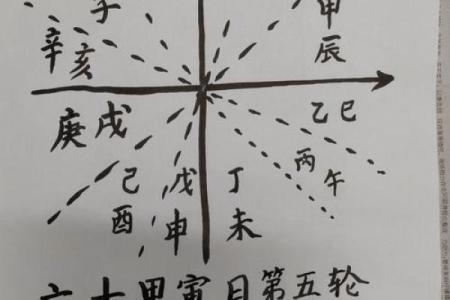 子
甲辰
辛亥
乙巳
庚戌
丙午
己酉
戊申
丁未
六十甲寅月第五轮